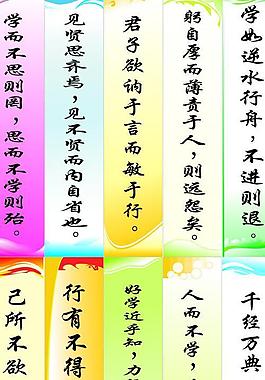 学而不思则罔，思而不学则殆。
见贤思齐焉，见不贤而内自省也。
君子欲讷于言而敏于行。
躬自厚而薄责于人，则远怨矣。
学如逆水行舟，不进则退。
己所不欲
行有不得
好学近乎知，力
人而不学，
千经万典